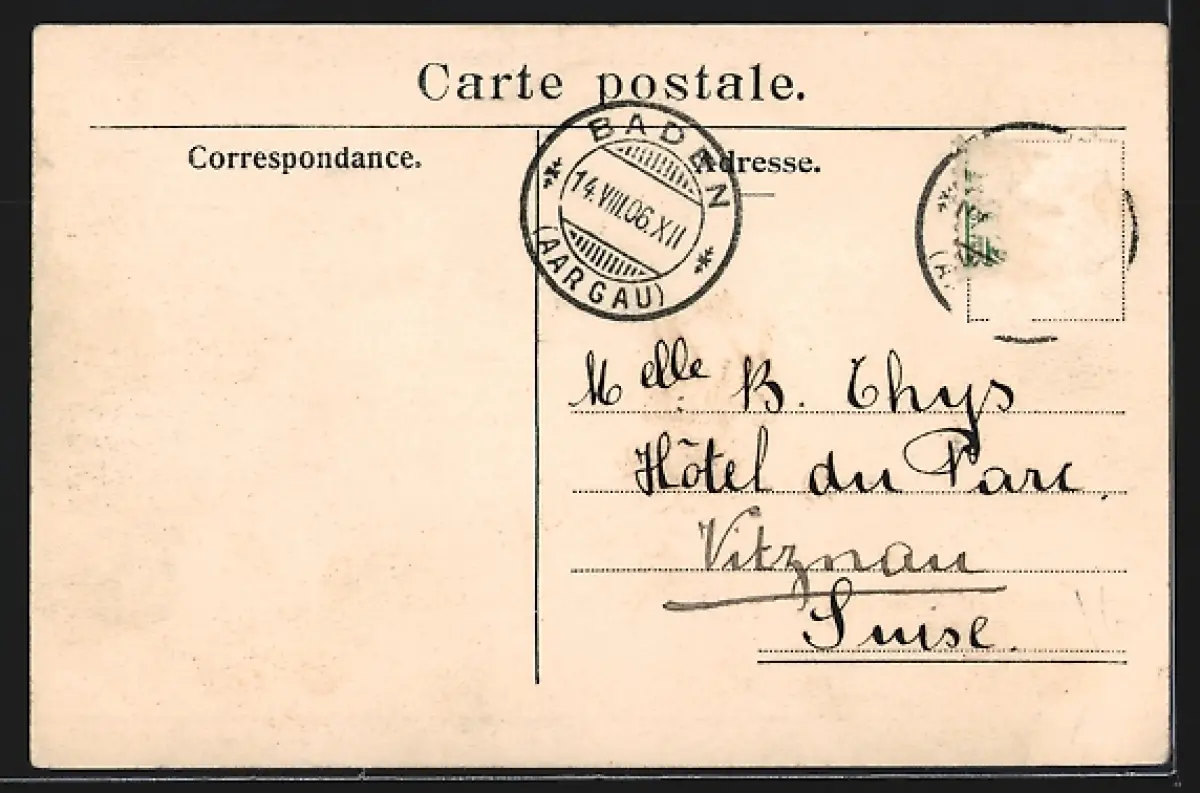 Carte postale.
Correspondance.
Adresse.
BADEN
14.VIII.06.XII
(AARGAU)
(A
Melle B. Thys
Hôtel du Parc.
Vitznau
Suise.